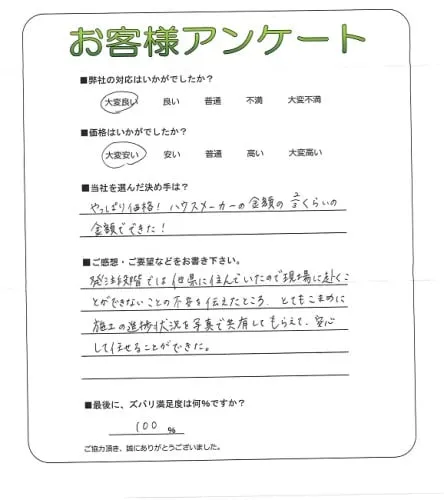 お客様アンケート
■弊社の対応はいかがでしたか？
大変良い 良い 普通 不満 大変不満
■価格はいかがでしたか？
大変安い 安い 普通 高い 大変高い
■当社を選んだ決め手は？
やっぱり価格！ハウスメーカーの金額の2/3くらいの
金額でできた！
■ご感想・ご要望などをお書き下さい。
発注段階では他県に住んでいたので現場に赴くこ
とができないことの不安を伝えたところ、とてもこまめに
施工の進捗状況を写真で共有してもらえて、安心
して任せることができた。
■最後に、ズバリ満足度は何%ですか？
100 %
ご協力頂き、誠にありがとうございました。